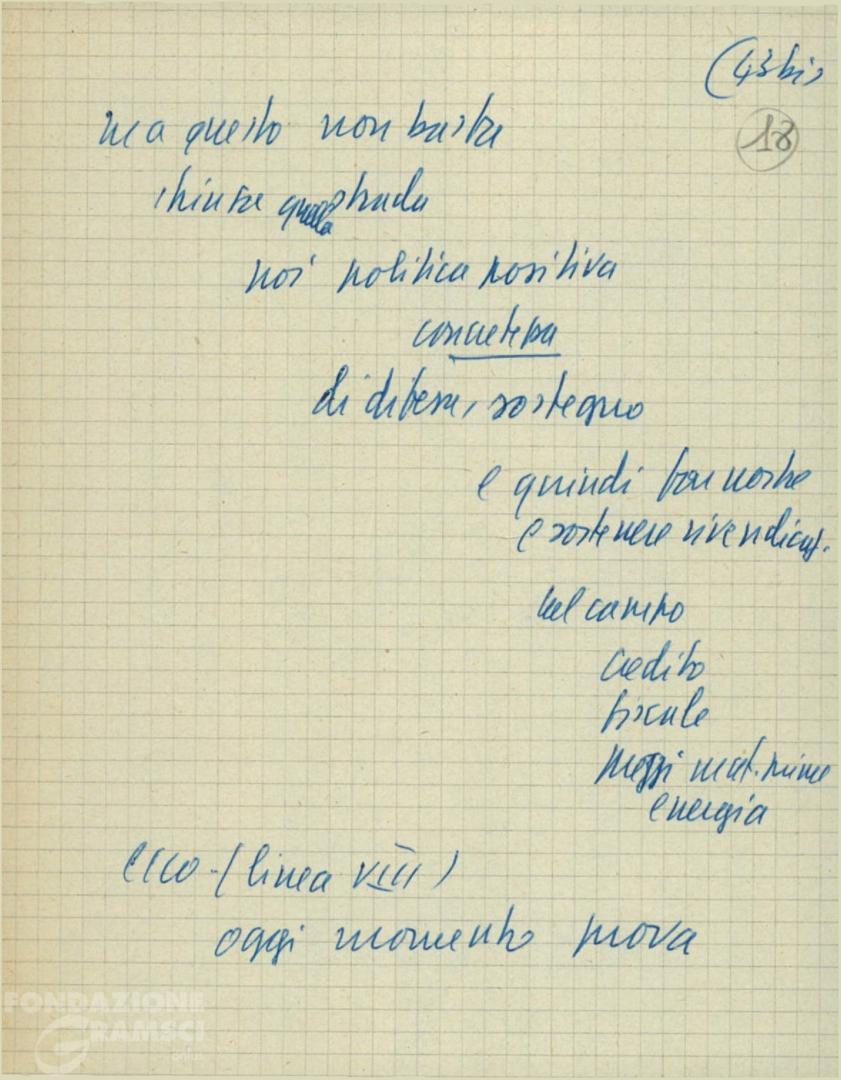 (43 bis
18
ma questo non basta
chiusa quella strada
noi politica positiva
concreta
di difesa, sostegno
e quindi far nostre
e sostenere rivendicaz.
nel campo
credito
fiscale
prezzi mat. prime
energia
ecco - (linea VIII)
oggi momento prova
FONDAZIONE
GRAMSCI